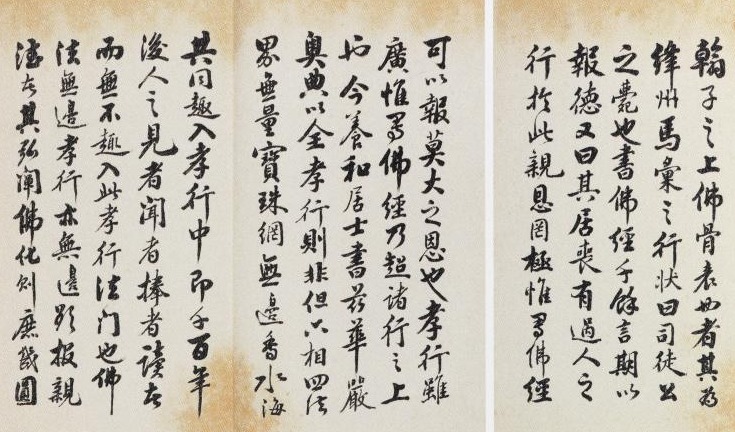 翰子之上佛骨表也者其為
絳州馬彙之行狀曰司徒公
之薨也書佛經千餘言期以
報德又曰其居喪有過人之
行於此親恩罔極惟寫佛經
可以報莫大之恩也孝行雖
廣惟寫佛經乃超諸行之上
也今養和居士書茲華嚴
奧典以全孝行則非但六相四法
界無量寶珠網無邊香水海
共同趣入孝行中即千百年
後人之見者聞者捧者讀者
而無不趣入此孝行法門也佛
法無邊孝行亦無邊欲報親
德者其弘闡佛化則庶幾圓